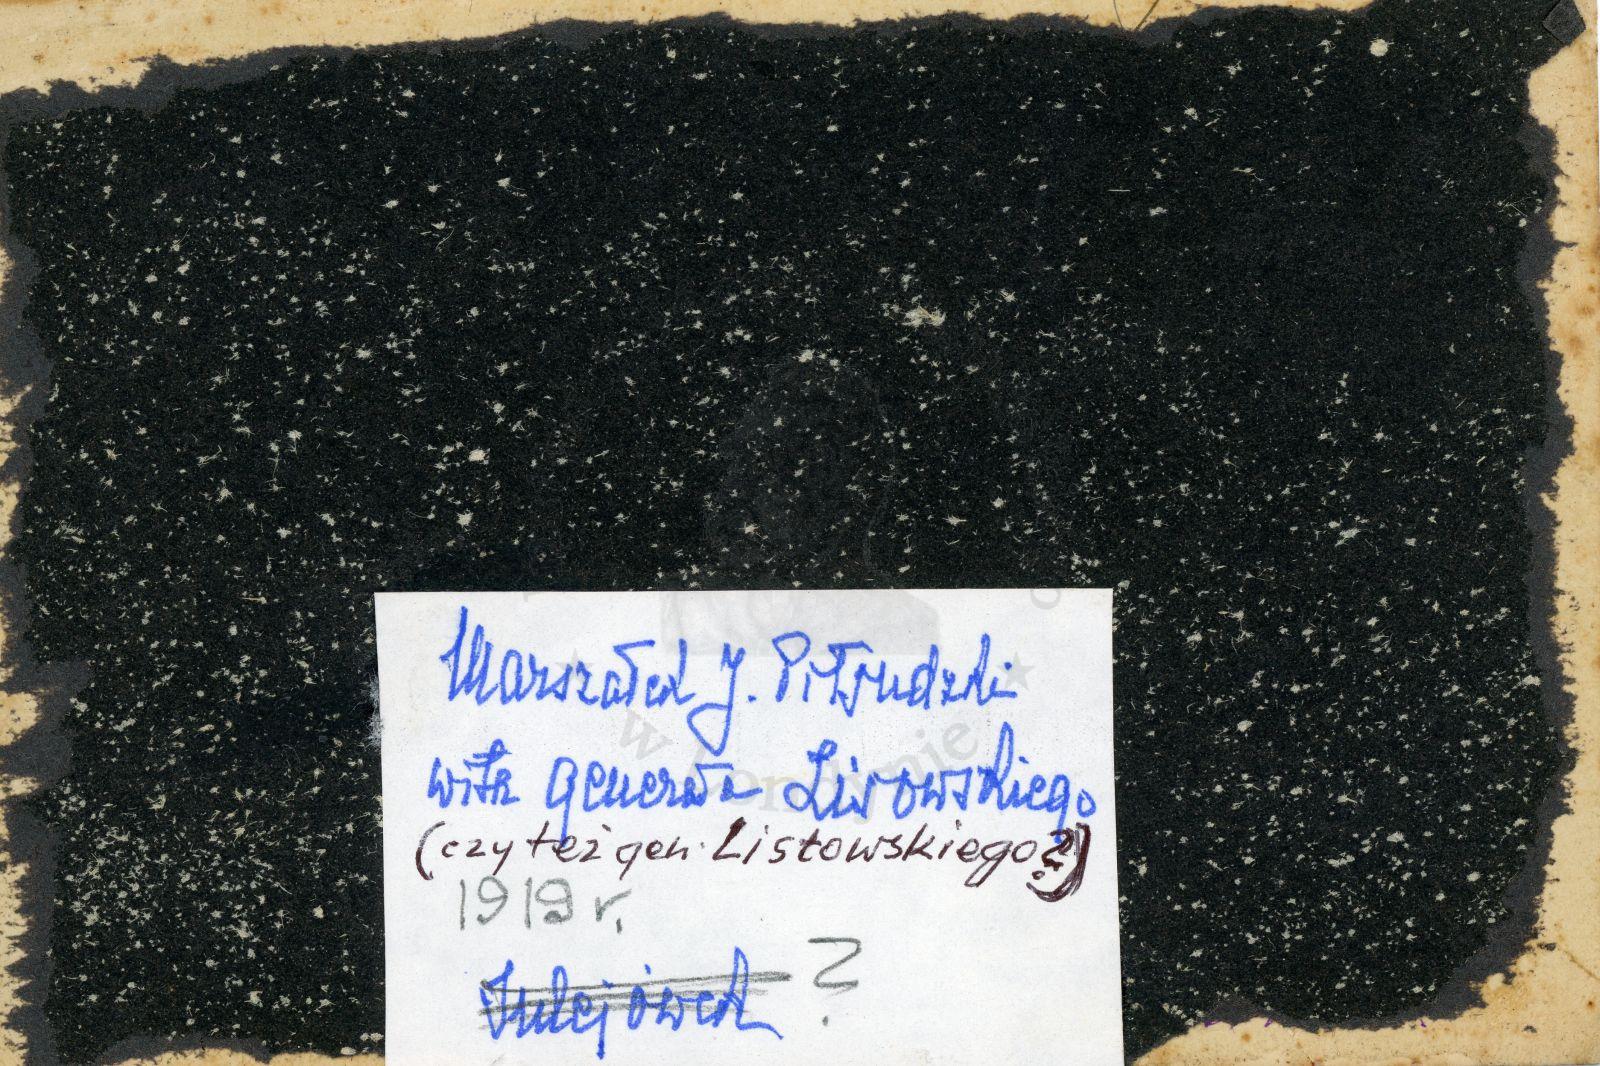 Marszałek J. Piłsudski
wita generała Lisowskiego
(czy też gen. Listowskiego?)
1919 r.
Sulejówek ?
w Londynie